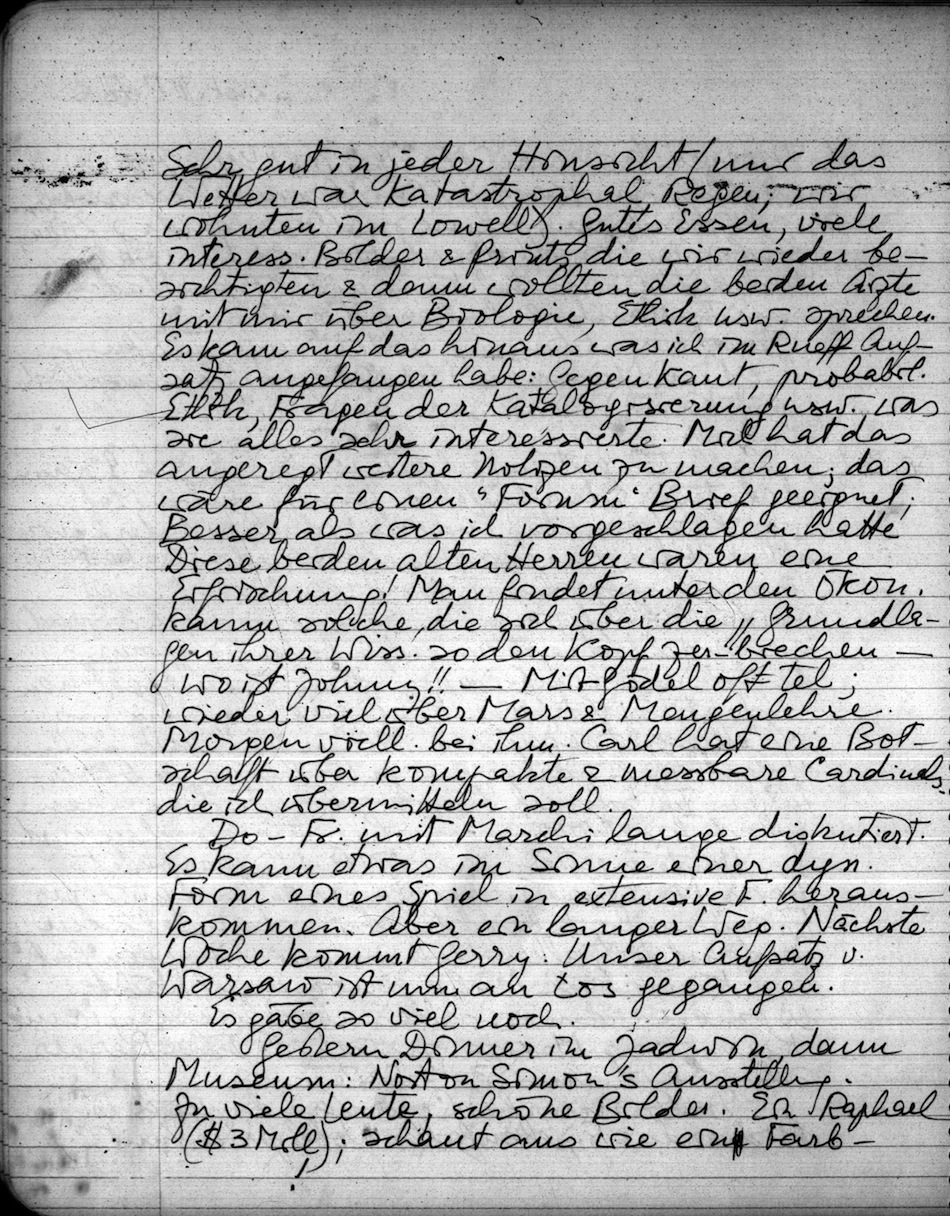 Sehr gut in jeder Hinsicht (nur das
Wetter war katastrophal Regen; wir
wohnten im Lowell). Gutes Essen, viele
interess. Bilder & Prints, die wir wieder be-
sichtigten & dann wollten die beiden Ärzte
mit mir über Biologie, Ethik usw. sprechen.
Es kam auf das hinaus was ich im Rueff Auf-
satz angefangen habe: Gegen Kant, probabil.
Ethik, Fragen der Katalogisierung usw. was
sie alles sehr interessierte. Mich hat das
angeregt weitere Notizen zu machen; das
wäre für einen "Forum" Brief geeignet;
Besser als was ich vorgeschlagen hatte
Diese beiden alten Herren waren eine
Erfrischung! Man findet unter den Ökon.
kaum solche, die sich über die Grundla-
gen ihrer Wiss. so den Kopf zer-brechen —
wo ist Johnny!! — Mit Gödel oft tel;
wieder viel über Mars & Mengenlehre.
Morgen viell. bei ihm. Carl hat eine Bot-
schaft über kompakte & messbare Cardinals.
die ich übermitteln soll.
Do - Fr. mit Marchi lange diskutiert.
Es kann etwas im Sinne einer dyn.
Form eines Spiel in extensive F. heraus-
kommen. Aber ein langer Weg. Nächste
Woche kommt Gerry. Unser Aufsatz v.
Warsaw ist nun an gegangen.
Es gäbe so viel noch.
Gestern Dinner im Jadwin, dann
Museum: Norton Simon's Ausstellg.
Zu viele Leute, schöne Bilder. Ein Raphael
($3 Mill,); schaut aus wie ein Farb-